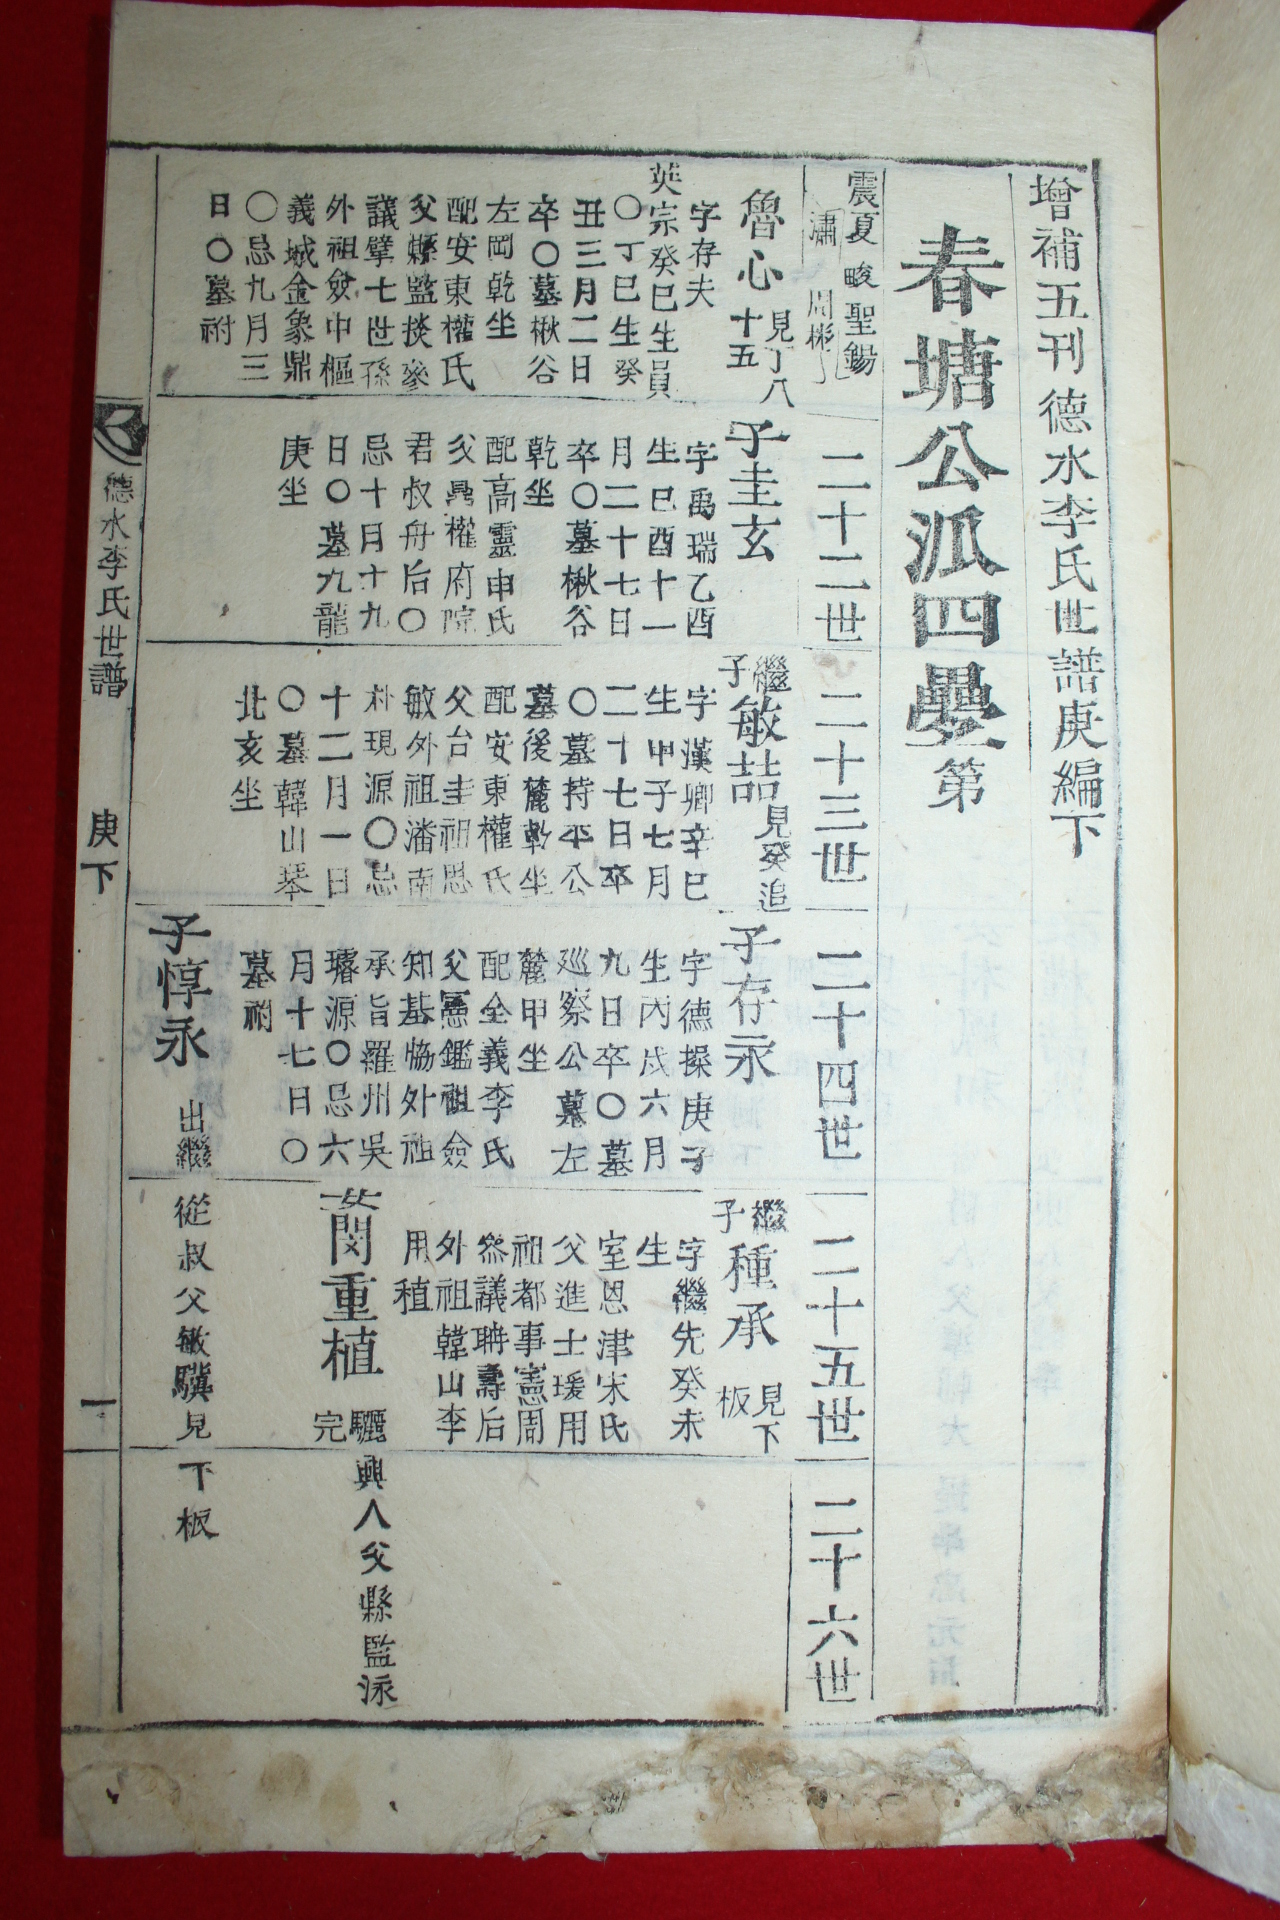 增補五刊德水李氏世譜庚編下
春塘公派四疊第
震夏 畯 聖錫
潚 周彬
二十二世
二十三世
二十四世
二十五世
二十六世
魯心 見丁八
十五
字存夫
英宗癸巳生員
〇丁巳生癸
丑三月二日
卒〇墓楸谷
左岡乾坐
配安東權氏
父縣監掞參
議擘七世孫
外祖僉中樞
義城金象鼎
〇忌九月三
日〇墓祔
子圭玄
字禹瑞乙酉
生巳酉十一
月二十七日
卒〇墓楸谷
乾坐
配高靈申氏
父鼎權府院
君叔舟后〇
忌十月十九
日〇墓九龍
庚坐
繼子敏喆 見癸追
字漢卿辛巳
生甲子七月
二十七日卒
〇墓持平公
墓後麓乾坐
配安東權氏
父台圭祖思
敏外祖潘南
朴現源〇忌
十二月一日
〇墓韓山琴
北亥坐
子存永
字德操庚子
生丙戌六月
九日卒〇墓
廵察公墓左
麓甲坐
配全義李氏
父憲鑑祖僉
知基恊外祖
承旨羅州吳
璿源〇忌六
月十七日〇
墓祔
子惇永 出繼從叔父敏驥見下板
繼子種承 見下板
字繼先癸未
生
室恩津宋氏
父進士瑗用
祖都事憲周
叅議聃壽后
外祖韓山李
用稙
女閔重植 驪興人父縣監泳
完
德水李氏世譜 庚下 一